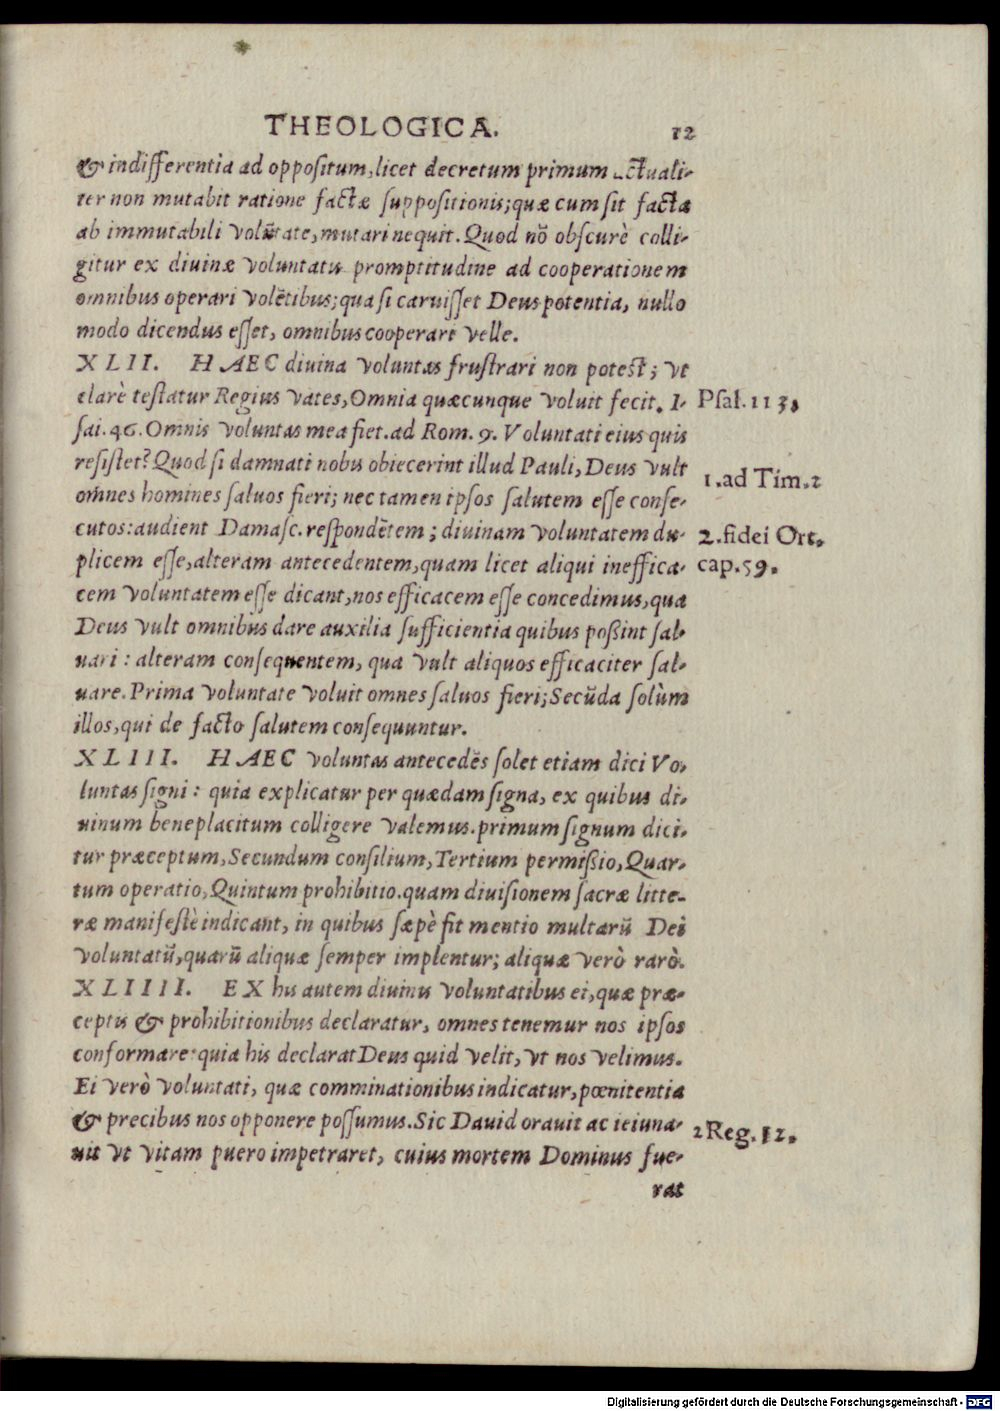 THEOLOGICA. 12
& indifferentia ad oppositum, licet decretum primum actuali-
ter non mutabit ratione factæ suppositionis; quæ cum sit facta
ab immutabili volūtate, mutari nequit. Quod nō obscurè colli-
gitur ex diuinæ voluntatis promptitudine ad cooperationem
omnibus operari volētibus; quasi caruisset Deus potentia, nullo
modo dicendus esset, omnibus cooperari velle.
XLII. HAEC diuina voluntas frustrari non potest; vt
clarè testatur Regius Vates, Omnia quæcunque voluit fecit. I- Psal. 113.
sai. 46. Omnis voluntas mea fiet. ad Rom. 9. Voluntati eius quis
resistet? Quod si damnati nobis obiecerint illud Pauli, Deus vult 1. ad Tim. 2
omnes homines saluos fieri; nec tamen ipsos salutem esse conse-
cutos: audient Damasc. respondētem; diuinam voluntatem du- 2. fidei Ort.
plicem esse, alteram antecedentem, quam licet aliqui ineffica- cap. 59.
cem voluntatem esse dicant, nos efficacem esse concedimus, qua
Deus vult omnibus dare auxilia sufficientia quibus poßint sal-
uari: alteram consequentem, qua vult aliquos efficaciter sal-
uare. Prima voluntate voluit omnes saluos fieri; Secūda solùm
illos, qui de facto salutem consequuntur.
XLIII. HAEC voluntas antecedēs solet etiam dici Vo-
luntas signi: quia explicatur per quædam signa, ex quibus di-
uinum beneplacitum colligere valemus. primum signum dici-
tur præceptum, Secundum consilium, Tertium permißio, Quar-
tum operatio, Quintum prohibitio. quam diuisionem sacræ litte-
ræ manifestè indicant, in quibus sæpè fit mentio multarū Dei
voluntatū, quarū aliquæ semper implentur; aliquæ verò rarò.
XLIIII. EX his autem diuinis voluntatibus ei, quæ præ-
ceptis & prohibitionibus declaratur, omnes tenemur nos ipsos
conformare: quia his declarat Deus quid velit, vt nos velimus.
Ei verò voluntati, quæ comminationibus indicatur, pœnitentia
& precibus nos opponere possumus. Sic Dauid orauit ac ieiuna- 2 Reg. 12.
uit vt vitam puero impetraret, cuius mortem Dominus fue-
rat
Digitalisierung gefördert durch die Deutsche Forschungsgemeinschaft - DFG